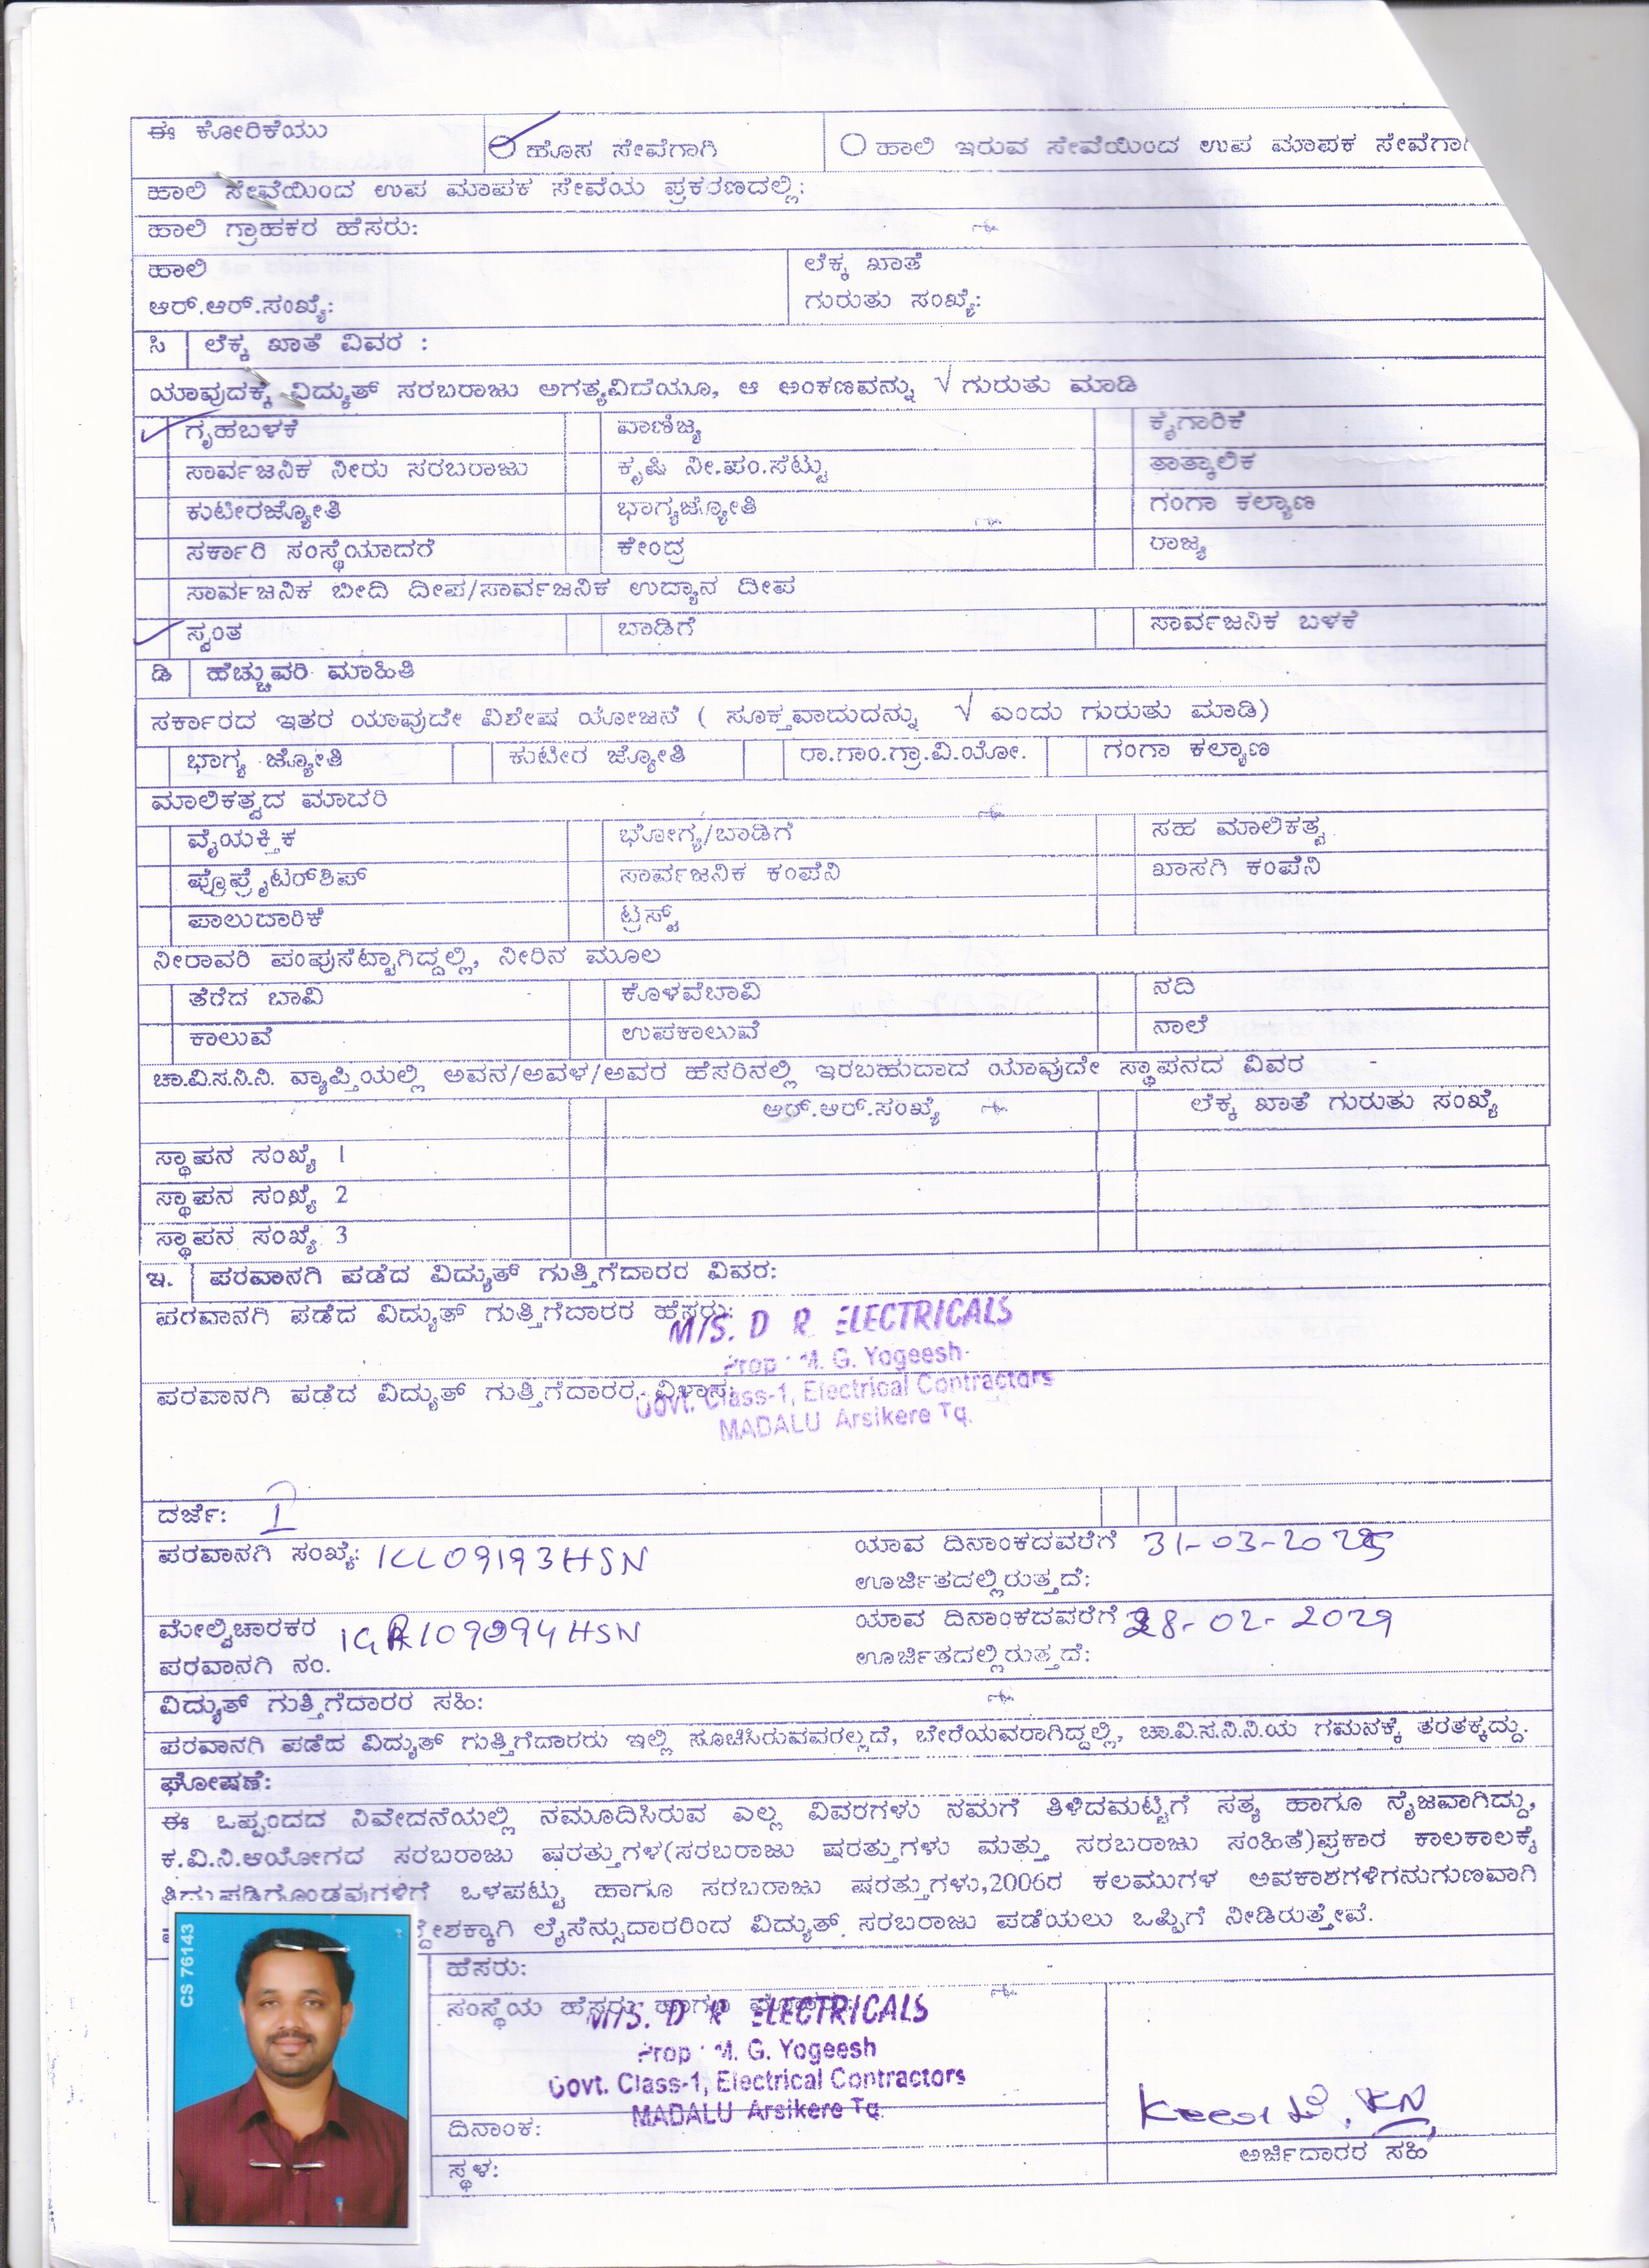 ಈ ಕೋರಿಕೆಯು ಹೊಸ ಸೇವೆಗಾಗಿ ಹಾಲಿ ಇರುವ ಸೇವೆಯಿಂದ ಉಪ ಮಾಪಕ ಸೇವೆಗಾಗಿ
ಹಾಲಿ ಸೇವೆಯಿಂದ ಉಪ ಮಾಪಕ ಸೇವೆಯ ಪ್ರಕರಣದಲ್ಲಿ:
ಹಾಲಿ ಗ್ರಾಹಕರ ಹೆಸರು:
ಹಾಲಿ ಲೆಕ್ಕ ಖಾತೆ
ಆರ್.ಆರ್.ಸಂಖ್ಯೆ: ಗುರುತು ಸಂಖ್ಯೆ:
ಸಿ ಲೆಕ್ಕ ಖಾತೆ ವಿವರ :
ಯಾವುದಕ್ಕೆ ವಿದ್ಯುತ್ ಸರಬರಾಜು ಅಗತ್ಯವಿದೆಯೂ, ಆ ಅಂಕಣವನ್ನು √ ಗುರುತು ಮಾಡಿ
ಗೃಹಬಳಕೆ ವಾಣಿಜ್ಯ ಕೈಗಾರಿಕೆ
ಸಾರ್ವಜನಿಕ ನೀರು ಸರಬರಾಜು ಕೃಷಿ ನೀ.ಪಂ.ಸೆಟ್ಟು ತಾತ್ಕಾಲಿಕ
ಕುಟೀರಜ್ಯೋತಿ ಭಾಗ್ಯಜ್ಯೋತಿ ಗಂಗಾ ಕಲ್ಯಾಣ
ಸರ್ಕಾರಿ ಸಂಸ್ಥೆಯಾದರೆ ಕೇಂದ್ರ ರಾಜ್ಯ
ಸಾರ್ವಜನಿಕ ಬೀದಿ ದೀಪ/ಸಾರ್ವಜನಿಕ ಉದ್ಯಾನ ದೀಪ
ಸ್ವಂತ ಬಾಡಿಗೆ ಸಾರ್ವಜನಿಕ ಬಳಕೆ
ಡಿ ಹೆಚ್ಚುವರಿ ಮಾಹಿತಿ
ಸರ್ಕಾರದ ಇತರ ಯಾವುದೇ ವಿಶೇಷ ಯೋಜನೆ ( ಸೂಕ್ತವಾದುದನ್ನು √ ಎಂದು ಗುರುತು ಮಾಡಿ)
ಭಾಗ್ಯ ಜ್ಯೋತಿ ಕುಟೀರ ಜ್ಯೋತಿ ರಾ.ಗಾಂ.ಗ್ರಾ.ವಿ.ಯೋ. ಗಂಗಾ ಕಲ್ಯಾಣ
ಮಾಲಿಕತ್ವದ ಮಾದರಿ
ವೈಯಕ್ತಿಕ ಭೋಗ್ಯ/ಬಾಡಿಗೆ ಸಹ ಮಾಲಿಕತ್ವ
ಪ್ರೊಪ್ರೈಟರ್‌ಶಿಪ್ ಸಾರ್ವಜನಿಕ ಕಂಪೆನಿ ಖಾಸಗಿ ಕಂಪೆನಿ
ಪಾಲುದಾರಿಕೆ ಟ್ರಸ್ಟ್
ನೀರಾವರಿ ಪಂಪುಸೆಟ್ಟಾಗಿದ್ದಲ್ಲಿ, ನೀರಿನ ಮೂಲ
ತೆರೆದ ಬಾವಿ ಕೊಳವೆಬಾವಿ ನದಿ
ಕಾಲುವೆ ಉಪಕಾಲುವೆ ನಾಲೆ
ಚಾ.ವಿ.ಸ.ನಿ.ನಿ. ವ್ಯಾಪ್ತಿಯಲ್ಲಿ ಅವನ/ಅವಳ/ಅವರ ಹೆಸರಿನಲ್ಲಿ ಇರಬಹುದಾದ ಯಾವುದೇ ಸ್ಥಾಪನದ ವಿವರ
ಆರ್.ಆರ್.ಸಂಖ್ಯೆ ಲೆಕ್ಕ ಖಾತೆ ಗುರುತು ಸಂಖ್ಯೆ
ಸ್ಥಾಪನ ಸಂಖ್ಯೆ 1
ಸ್ಥಾಪನ ಸಂಖ್ಯೆ 2
ಸ್ಥಾಪನ ಸಂಖ್ಯೆ 3
ಇ. ಪರವಾನಗಿ ಪಡೆದ ವಿದ್ಯುತ್ ಗುತ್ತಿಗೆದಾರರ ವಿವರ:
ಪರವಾನಗಿ ಪಡೆದ ವಿದ್ಯುತ್ ಗುತ್ತಿಗೆದಾರರ ಹೆಸರು:
M/S. D R ELECTRICALS
Prop : M. G. Yogeesh
ಪರವಾನಗಿ ಪಡೆದ ವಿದ್ಯುತ್ ಗುತ್ತಿಗೆದಾರರ ವಿಳಾಸ:
Govt. Class-1, Electrical Contractors
MADALU Arsikere Tq.
ದರ್ಜೆ: I
ಪರವಾನಗಿ ಸಂಖ್ಯೆ: 1CL09193HSN ಯಾವ ದಿನಾಂಕದವರೆಗೆ 31-03-2025
ಊರ್ಜಿತದಲ್ಲಿರುತ್ತದೆ:
ಮೇಲ್ವಿಚಾರಕರ ಯಾವ ದಿನಾಂಕದವರೆಗೆ 28-02-2029
ಪರವಾನಗಿ ನಂ. ಊರ್ಜಿತದಲ್ಲಿರುತ್ತದೆ:
ವಿದ್ಯುತ್ ಗುತ್ತಿಗೆದಾರರ ಸಹಿ:
ಪರವಾನಗಿ ಪಡೆದ ವಿದ್ಯುತ್ ಗುತ್ತಿಗೆದಾರರು ಇಲ್ಲಿ ಸೂಚಿಸಿರುವವರಲ್ಲದೆ, ಬೇರೆಯವರಾಗಿದ್ದಲ್ಲಿ, ಚಾ.ವಿ.ಸ.ನಿ.ನಿ.ಯ ಗಮನಕ್ಕೆ ತರತಕ್ಕದ್ದು.
ಘೋಷಣೆ:
ಈ ಒಪ್ಪಂದದ ನಿವೇದನೆಯಲ್ಲಿ ನಮೂದಿಸಿರುವ ಎಲ್ಲ ವಿವರಗಳು ನಮಗೆ ತಿಳಿದಮಟ್ಟಿಗೆ ಸತ್ಯ ಹಾಗೂ ನೈಜವಾಗಿದ್ದು,
ಕ.ವಿ.ನಿ.ಆಯೋಗದ ಸರಬರಾಜು ಷರತ್ತುಗಳ(ಸರಬರಾಜು ಷರತ್ತುಗಳು ಮತ್ತು ಸರಬರಾಜು ಸಂಹಿತೆ)ಪ್ರಕಾರ ಕಾಲಕಾಲಕ್ಕೆ
ತಿದ್ದುಪಡಿಗೊಂಡವುಗಳಿಗೆ ಒಳಪಟ್ಟು ಹಾಗೂ ಸರಬರಾಜು ಷರತ್ತುಗಳು,2006ರ ಕಲಮುಗಳ ಅವಕಾಶಗಳಿಗನುಗುಣವಾಗಿ
ದ್ದೇಶಕ್ಕಾಗಿ ಲೈಸೆನ್ಸುದಾರರಿಂದ ವಿದ್ಯುತ್ ಸರಬರಾಜು ಪಡೆಯಲು ಒಪ್ಪಿಗೆ ನೀಡಿರುತ್ತೇವೆ.
CS 76143
ಹೆಸರು:
ಸಂಸ್ಥೆಯ ಹೆಸರು ಹಾಗೂ
M/S. D R ELECTRICALS
Prop : M. G. Yogeesh
Govt. Class-1, Electrical Contractors
MADALU Arsikere Tq.
ದಿನಾಂಕ:
ಅರ್ಜಿದಾರರ ಸಹಿ
ಸ್ಥಳ: